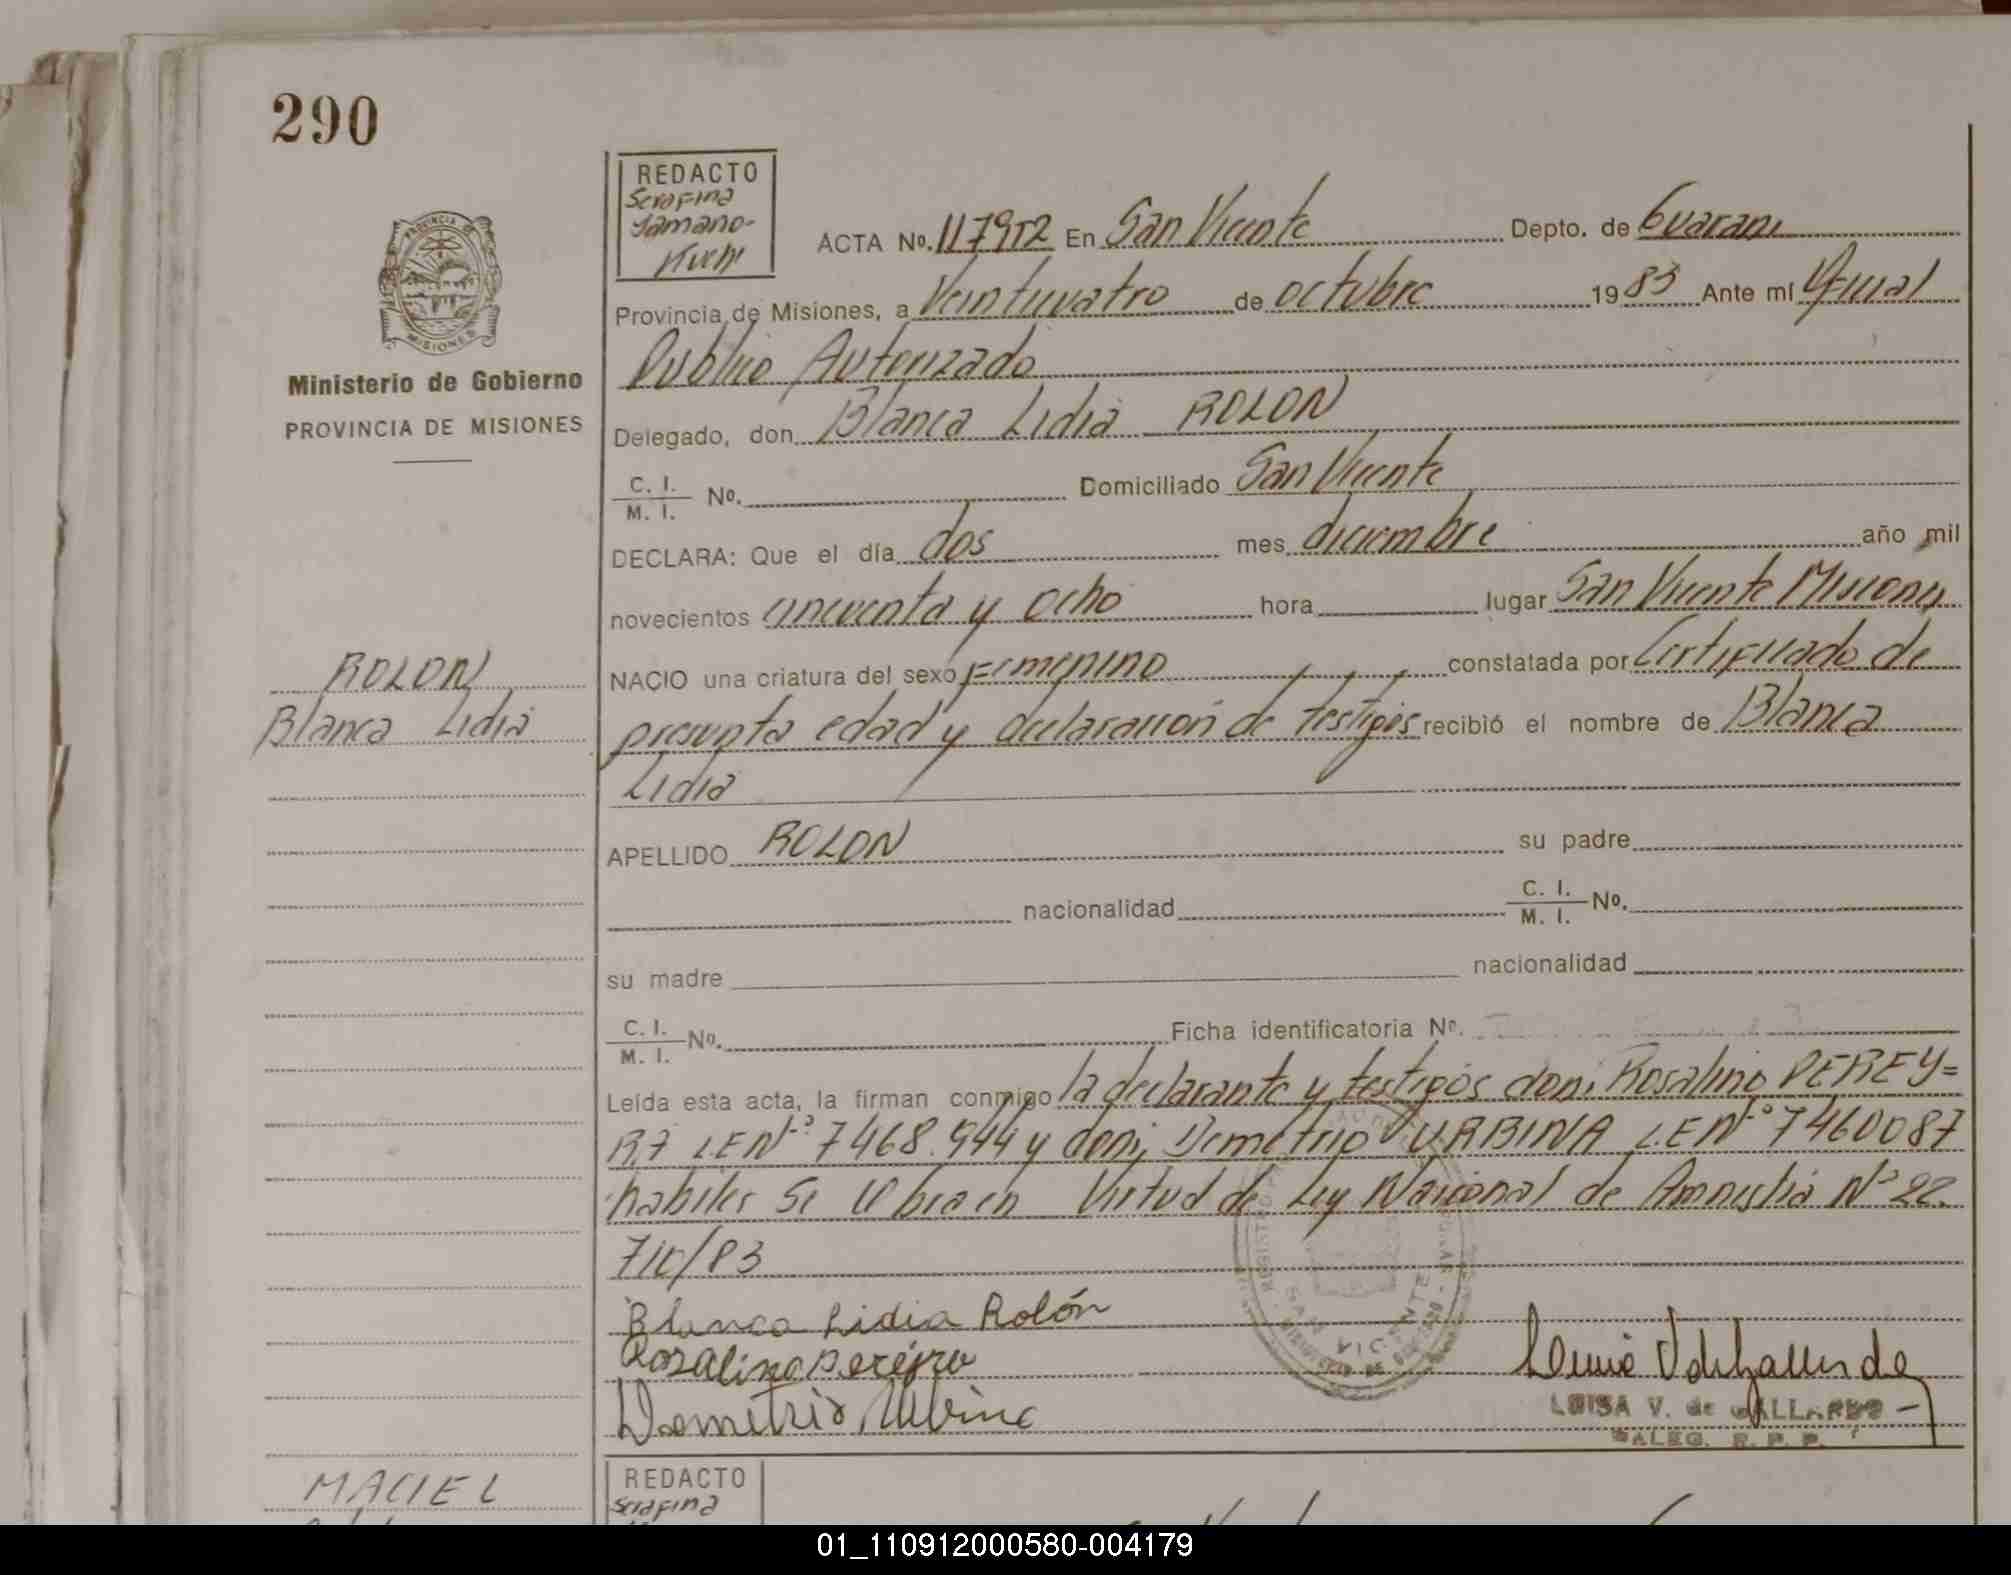 290
REDACTO
Serafina
ACTA No. 117952 En San Vicente Depto. de Guarani
Provincia de Misiones, a Veinticuatro de octubre 1983 Ante mí Oficial
Publico Autorizado
Ministerio de Gobierno
PROVINCIA DE MISIONES
Delegado, don Blanca Lidia ROLON
C. I.
M. I. No. Domiciliado San Vicente
DECLARA: Que el día dos mes diciembre año mil
novecientos cincuenta y ocho hora lugar San Vicente Misiones
ROLON
Blanca Lidia
NACIO una criatura del sexo Femenino constatada por Certificado de
presunta edad y declaración de testigos recibió el nombre de Blanca
Lidia
APELLIDO ROLON su padre
nacionalidad C. I.
M. I. No.
su madre nacionalidad
C. I.
M. I. No. Ficha identificatoria No.
Leída esta acta, la firman conmigo la declarante y testigos don: Rosalino PEREY=
RA L.E Nº 7468.944 y don: Demetrio URBINA L.E Nº 7460087
habiles Se labra en Virtud de Ley Nacional de Amnistia Nº 22.
710/83
Blanca Lidia Rolón
Rosalino Pereyra
Demetrio Urbina
SAN VICENTE
LUISA V. de GALLARDO
R. P. P.
MACIEL
REDACTO
Serafina
01_110912000580-004179